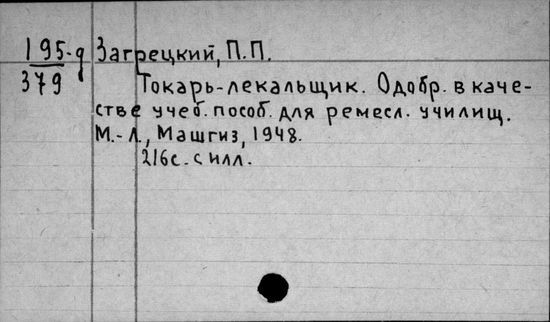 195-д Загрецкий, П.П.
379 Токарь-лекальщик. Одобр. в каче-
стве учеб. пособ. для ремесл. училищ.
М.-Л., Машгиз, 1948.
216с. с илл.